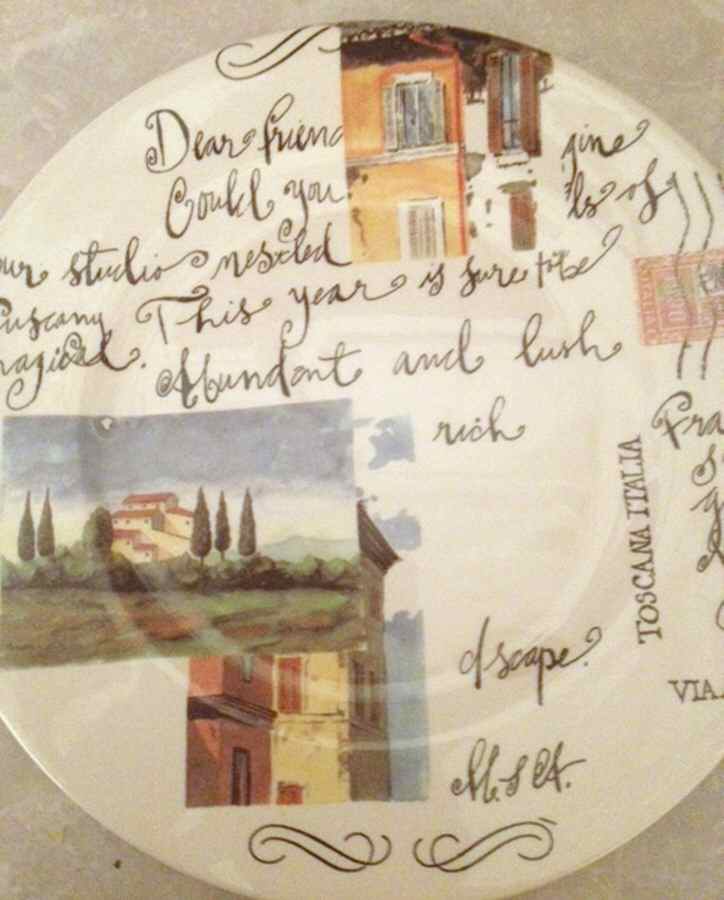 Dear frien
Could you gine
our studio nestled ls of
Tuscany This year is sure to be
magical. Abundant and lush
rich
dscape.
M.S A.
TOSCANA ITALIA
Fra
VIA.